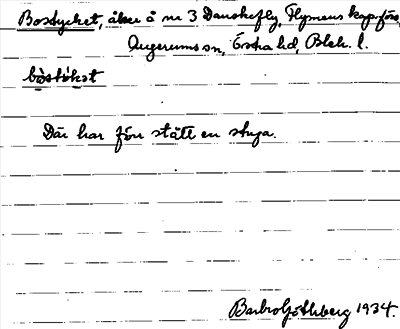 Bostycket, åker å nr 3 Danskefly, Flymens kapförs.
Augerums sn, Östra hd, Blek. l.
bòstỳkət
Där har förr stått en stuga.
Barbro Göthberg 1934.